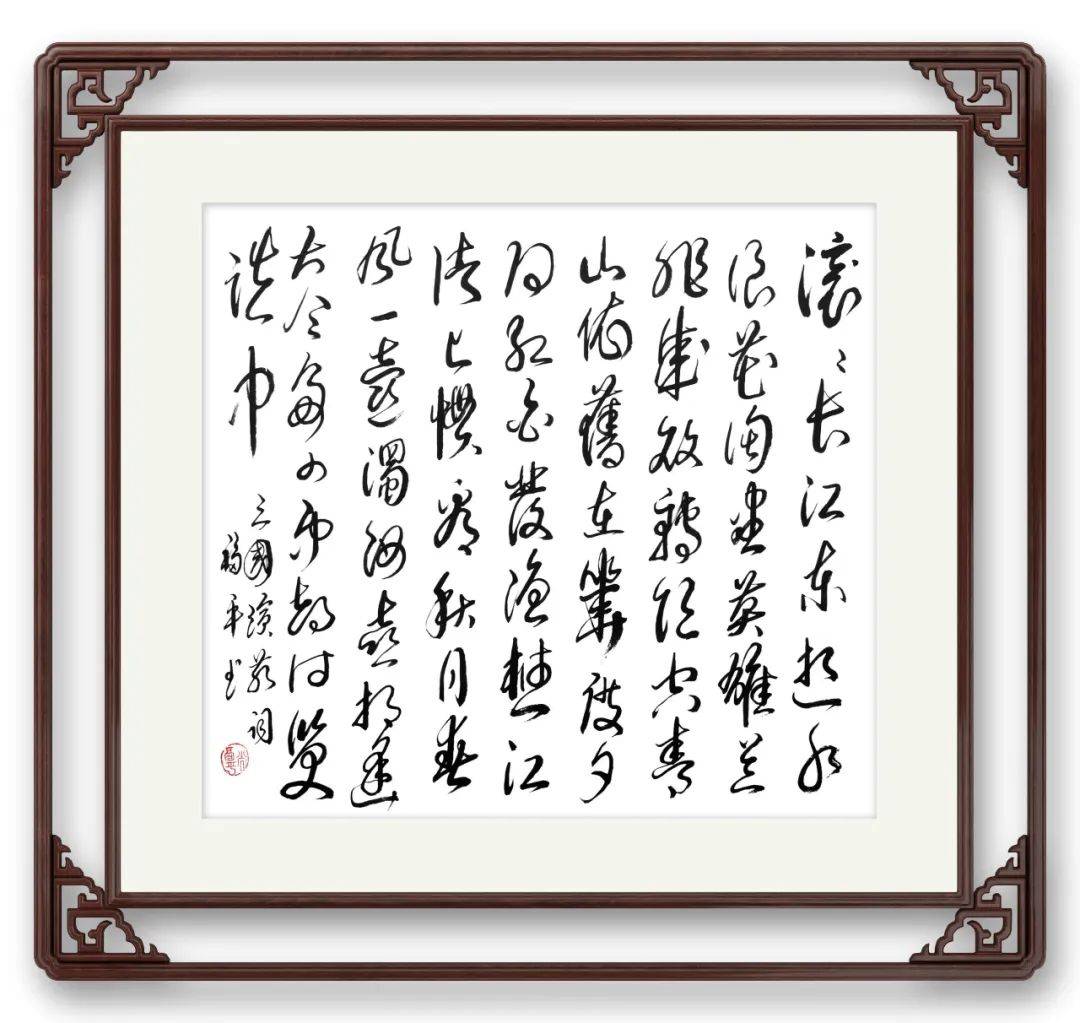 滚〻长江东逝水
浪花淘尽英雄是
非成败转头空青
山依舊在幾度夕
阳红白發渔樵江
渚上惯看秋月春
风一壶濁酒喜相逢
古今多少事都付笑
谈中
三國演义词
福平书